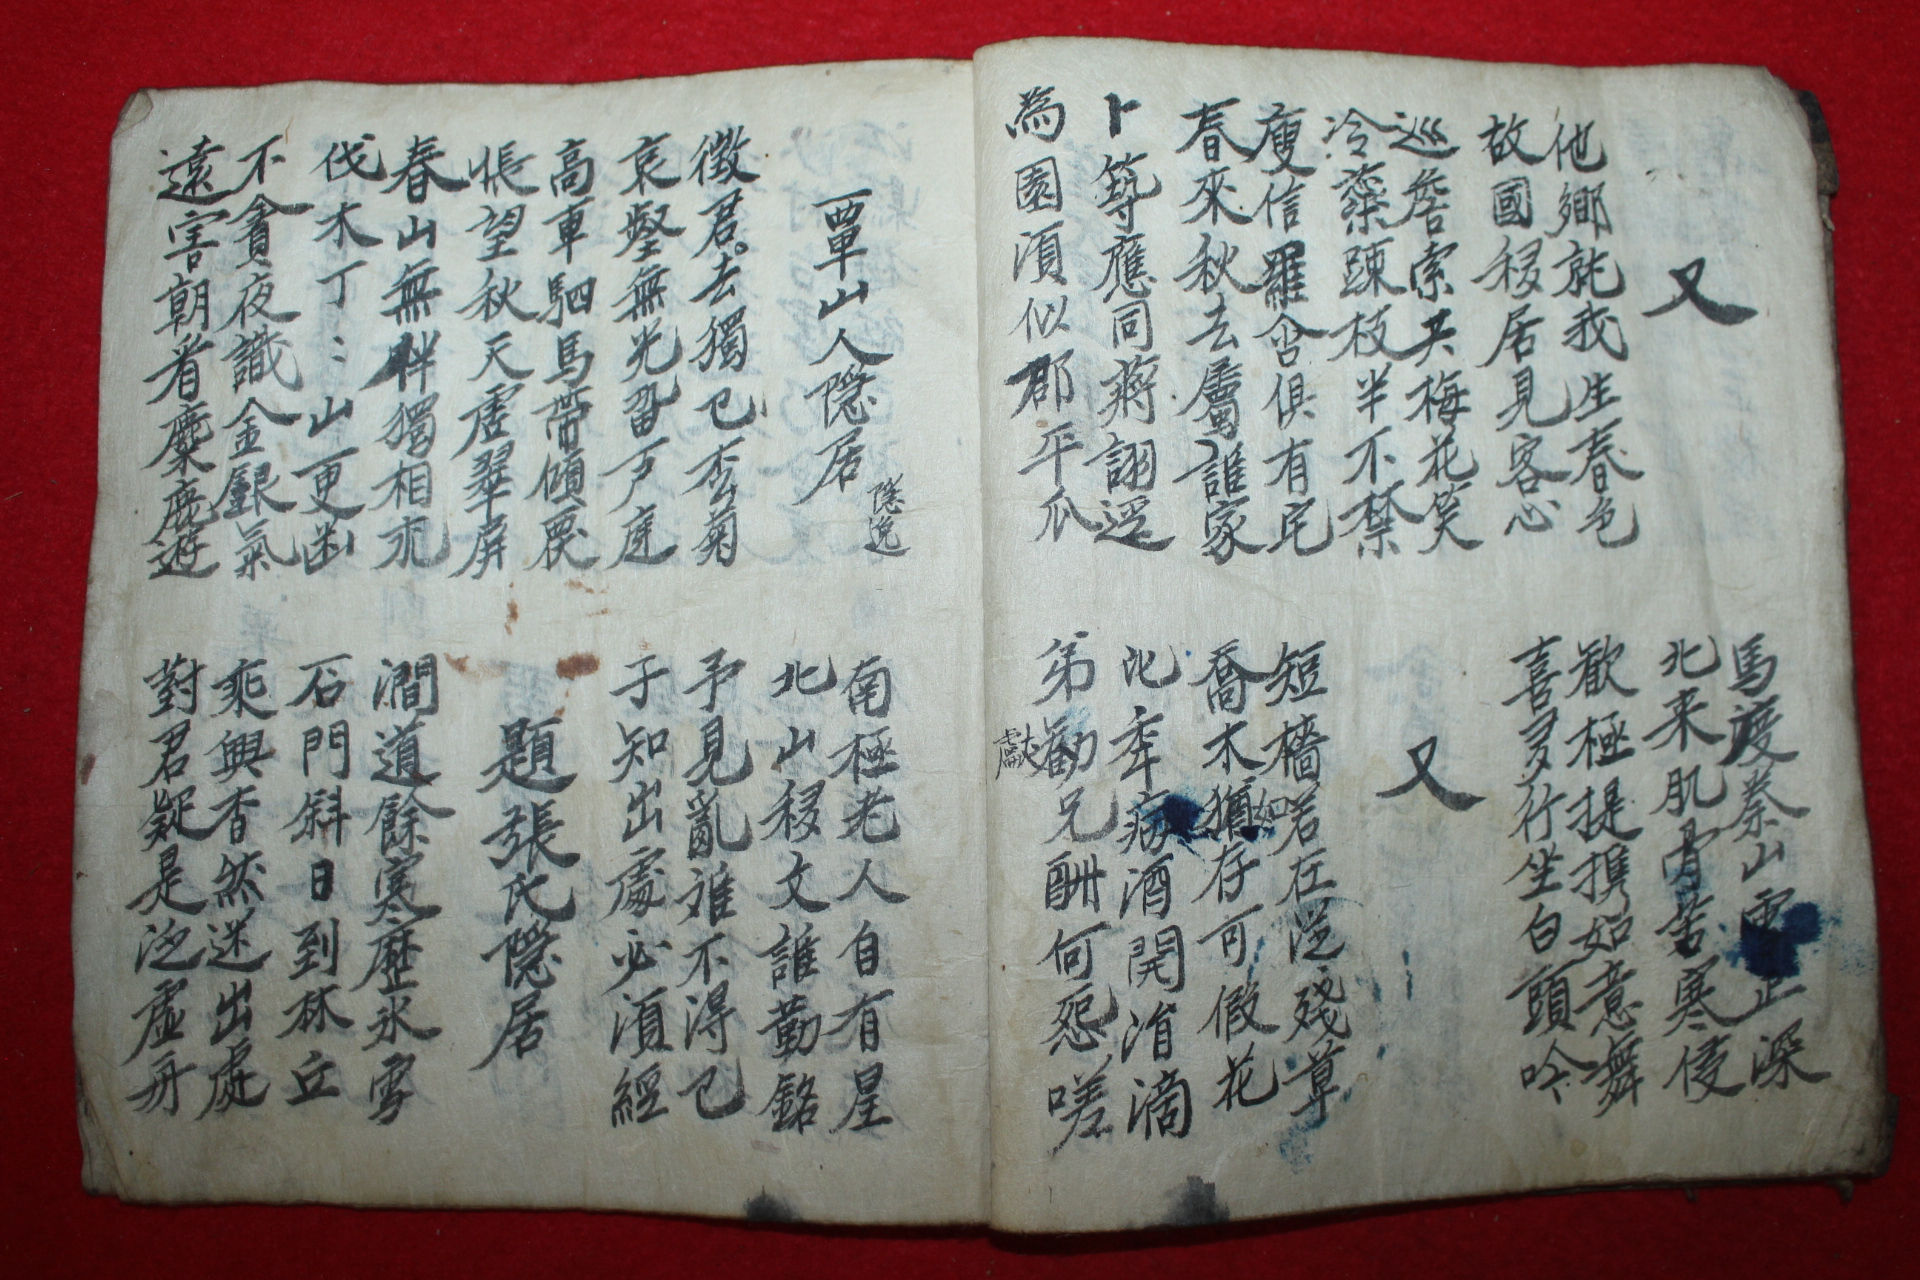 又
馬渡秦山雪正深
北来肌骨苦寒侵
他鄉就我生春色
故國移居見客心
歡極提携如意舞
喜多行坐白頭吟
巡簷索共梅花笑
冷蘂踈枝半不禁
又
庾信羅含俱有宅
春來秋去屬誰家
短墻若在從殘草
喬木猶存可假花
如
卜築應同蔣詡逕
為園湏似邵平瓜
比年病酒開涓滴
弟勸兄酬何怨嗟
獻
覃山人隱居
隱逸
南極老人自有星
北山移文誰勒銘
徵君。去獨已枩菊
哀壑無光留戶庭
予見亂離不得已
子知出處必湏經
高車駟馬帶傾覆
悵望秋天虛翠屏
題張氏隱居
春山無伴獨相求
伐木丁〻山更幽
澗道餘寒歷氷雪
石門斜日到林丘
不貪夜識金銀氣
遠害朝看麋鹿遊
乘興杳然迷出處
對君疑是泛虛舟